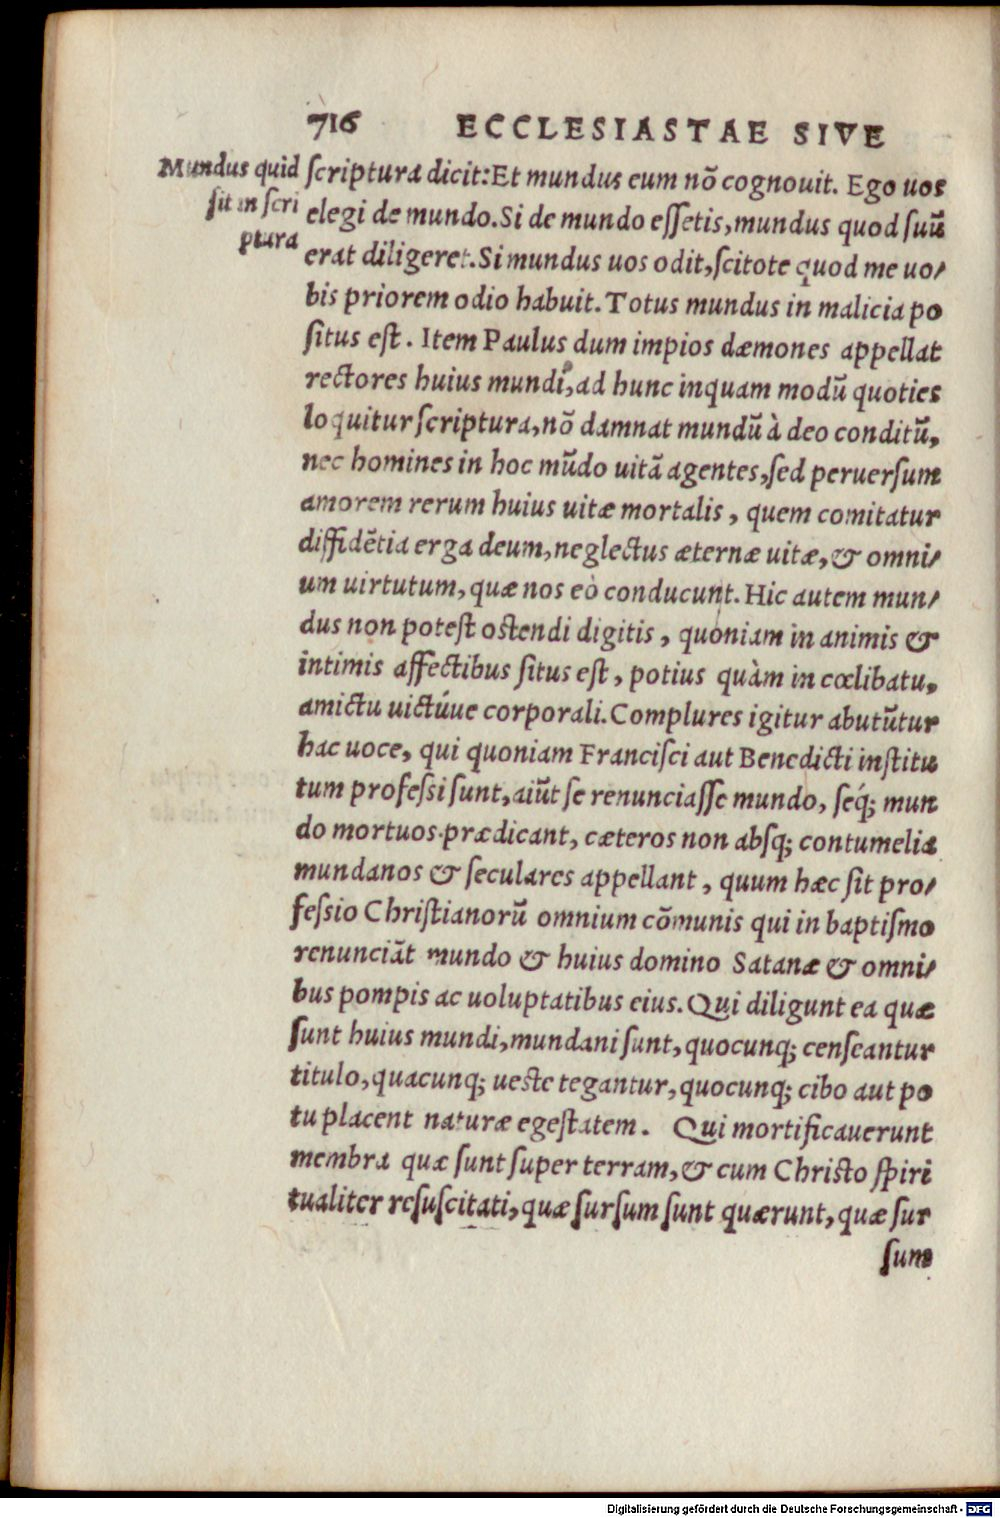 716 ECCLESIASTAE SIVE
Mundus quid
sit in scri
ptura
scriptura dicit: Et mundus eum nõ cognouit. Ego uos
elegi de mundo. Si de mundo essetis, mundus quod suũ
erat diligeret. Si mundus uos odit, scitote quod me uo/
bis priorem odio habuit. Totus mundus in malicia po
situs est. Item Paulus dum impios dæmones appellat
rectores huius mundi, ad hunc inquam modũ quoties
loquitur scriptura, nõ damnat mundũ à deo conditũ,
nec homines in hoc mũdo uitã agentes, sed peruersum
amorem rerum huius uitæ mortalis, quem comitatur
diffidẽtia erga deum, neglectus æternæ uitæ, & omni/
um uirtutum, quæ nos eò conducunt. Hic autem mun/
dus non potest ostendi digitis, quoniam in animis &
intimis affectibus situs est, potius quàm in cœlibatu,
amictu uictúue corporali. Complures igitur abutũtur
hac uoce, qui quoniam Francisci aut Benedicti institu
tum professi sunt, aiũt se renunciasse mundo, séq́; mun
do mortuos prædicant, cæteros non absq; contumelia
mundanos & seculares appellant, quum hæc sit pro/
fessio Christianorũ omnium cõmunis qui in baptismo
renunciãt mundo & huius domino Satanæ & omni/
bus pompis ac uoluptatibus eius. Qui diligunt ea quæ
sunt huius mundi, mundani sunt, quocunq; censeantur
titulo, quacunq; ueste tegantur, quocunq; cibo aut po
tu placent naturæ egestatem. Qui mortificauerunt
membra quæ sunt super terram, & cum Christo spiri
tualiter resuscitati, quæ sursum sunt quærunt, quæ sur
sum
Digitalisierung gefördert durch die Deutsche Forschungsgemeinschaft - DFG